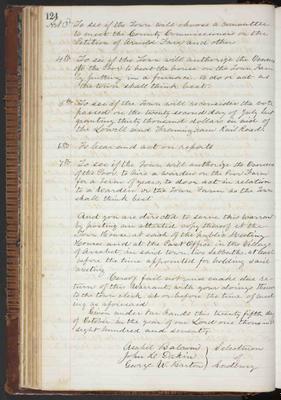 124
Art 3d To see if the Town will choose a committee
to meet the County Commissioners on the
Petition of Arnold Fair and other
4th To see if the Town will authorize the Overseers
of the Poor to heat the house on the Town Farm
by putting in a furnace, to do or act as
the town shall think best.
5th To see if the Town will reconsider the vote
passed on the twenty second day of July last
granting thirty thousand dollars in aid of
the Lowell and Framingham Rail Road.
6th To hear and act on reports
7th To see if the Town will authorize the Overseers
of the Poor, to hire a warden on the Poor Farm
for a term of years, to do or act in relation
to a Warden on the Town Farm as the Town
shall think best
And you are directed to serve this Warrant
by posting an attested copy thereof at the
Town House, at each of the public Meeting
Houses and at the Post Office in the Village
of Assabet in said town two Sabbaths at least
before the time appointed for holding said
meeting
Hereof fail not and make due re
turn of this Warrant with your doings thereon
to the town clerk on or before the time of meet
ing as aforesaid
Given under our hands this twenty fifth day
of October in the year of our Lord one thousand
eight hundred and seventy
Asahel Balcom } Selectmen
John H. Dakin } of
George W. Barton } Sudbury